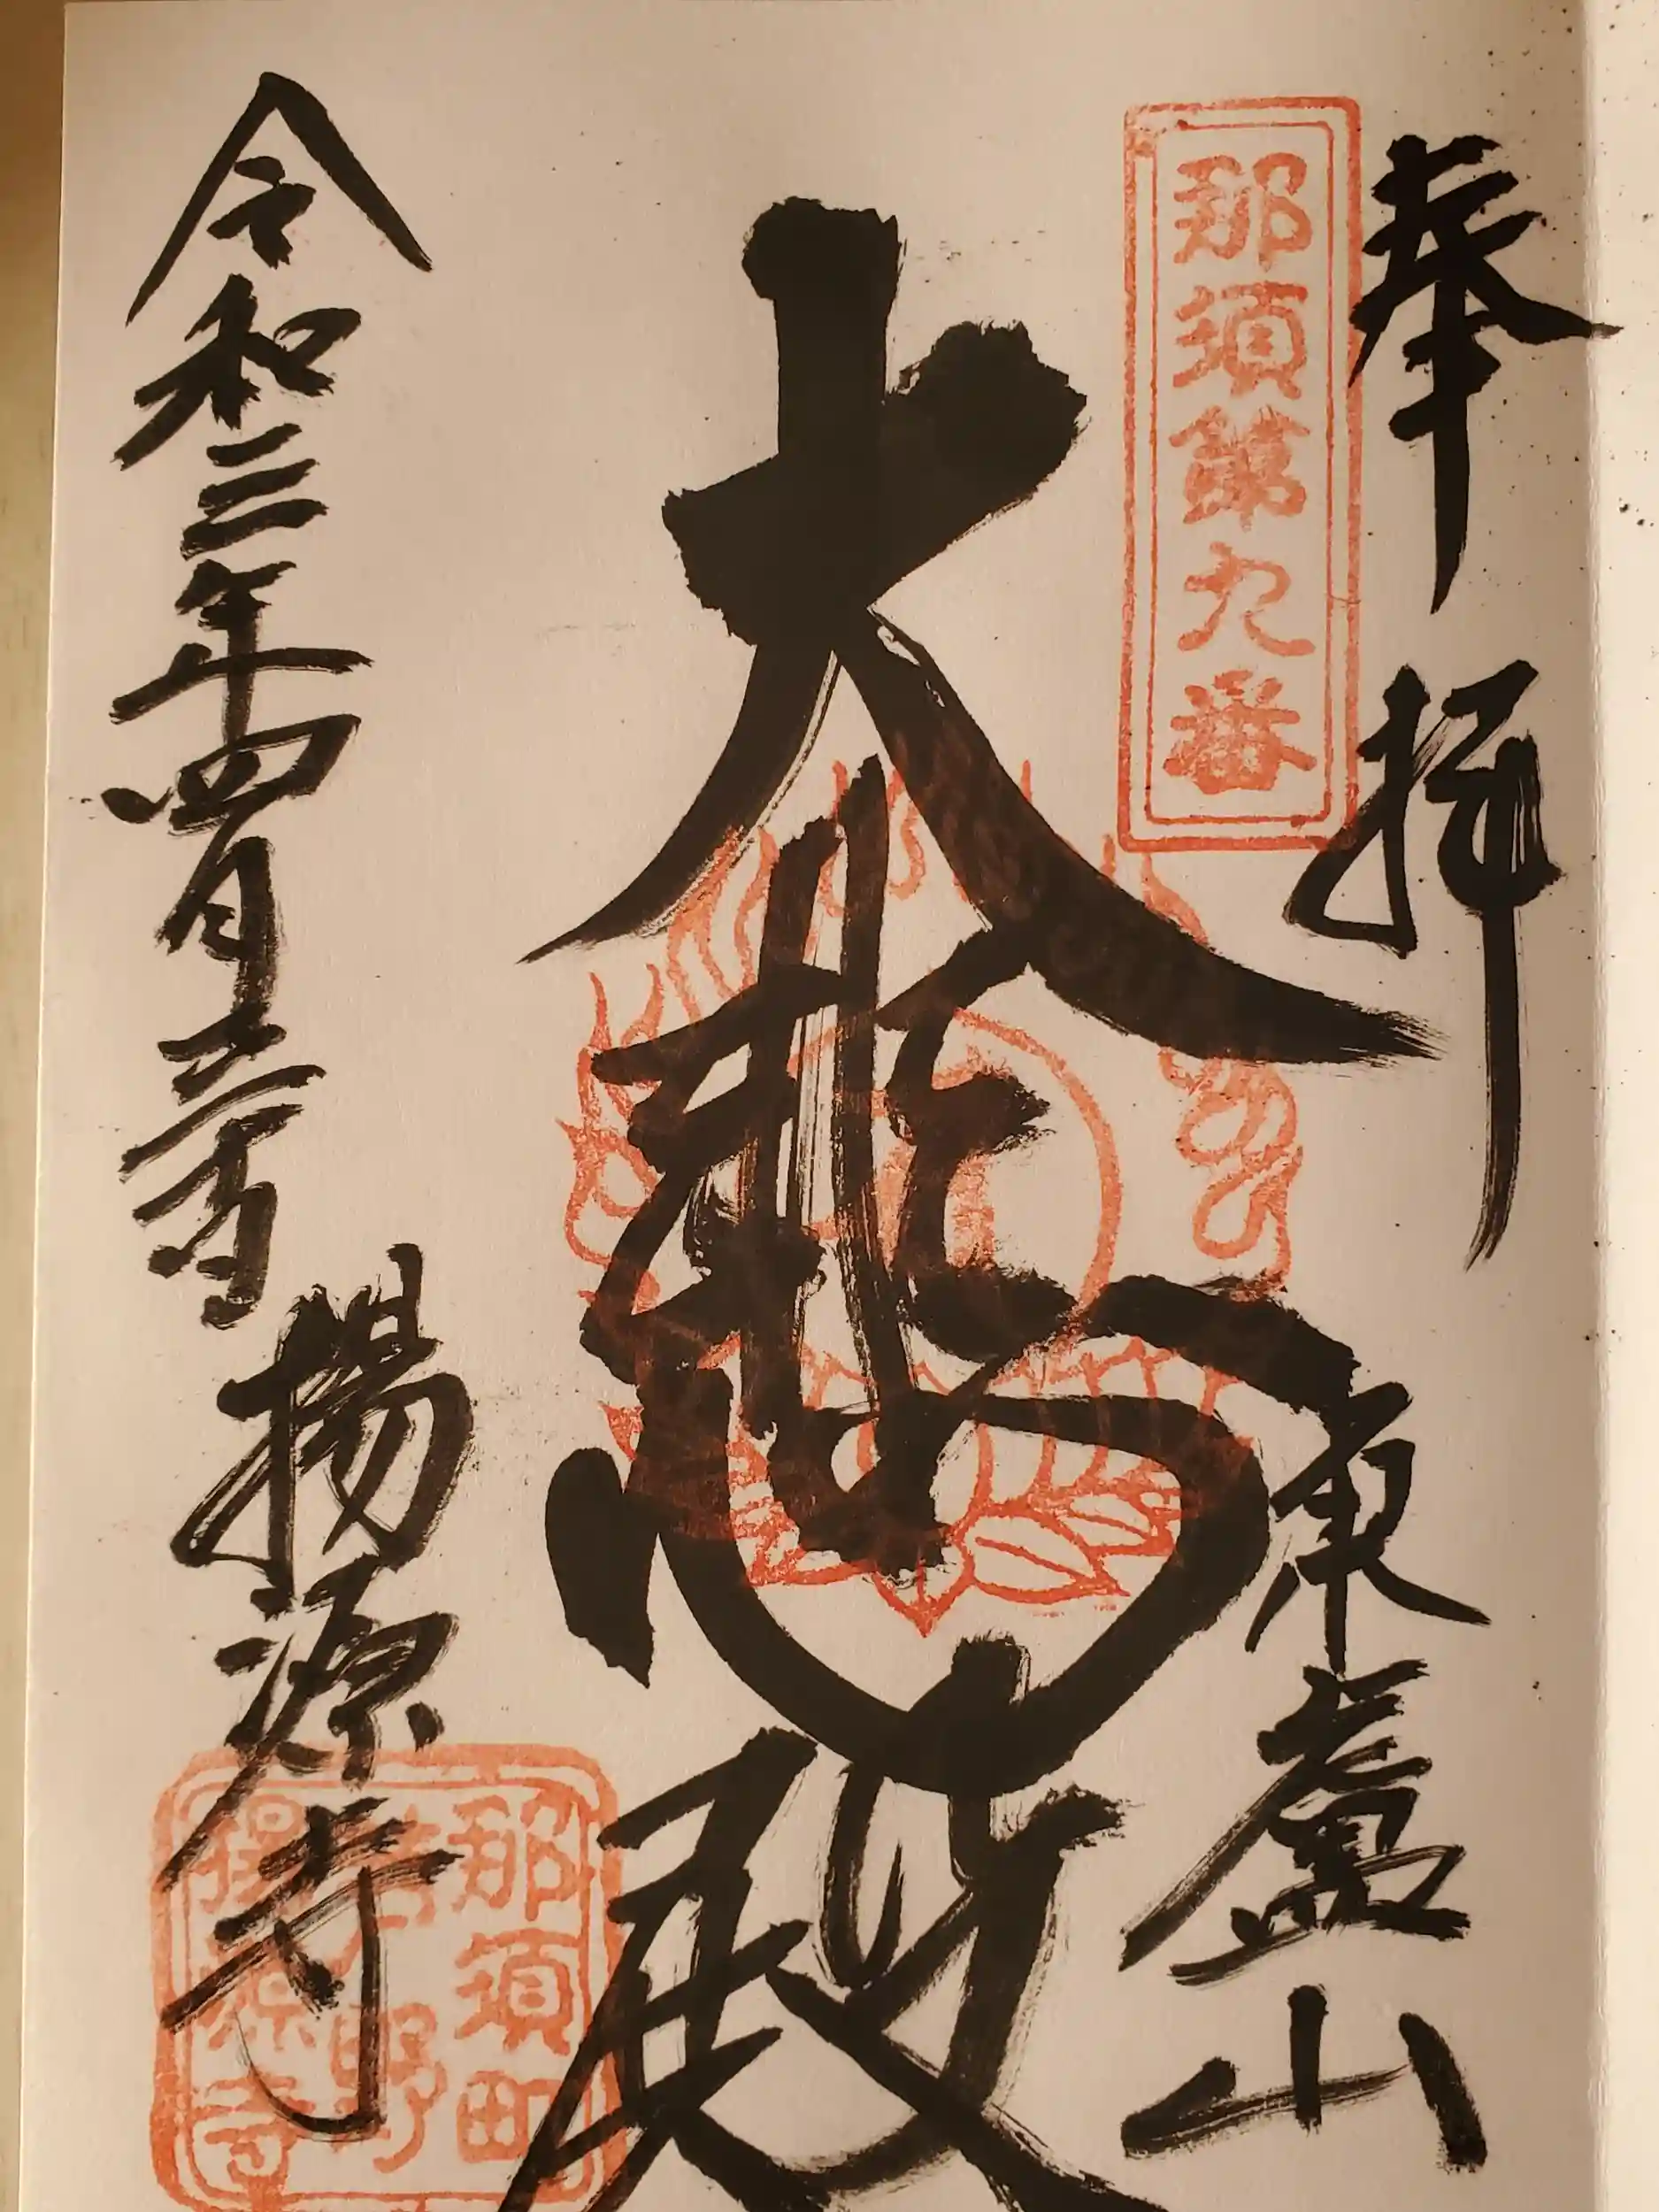 奉拝
東盧山
那須第九番
大悲殿
令和三年四月
揚源寺
那須町
野
揚源寺